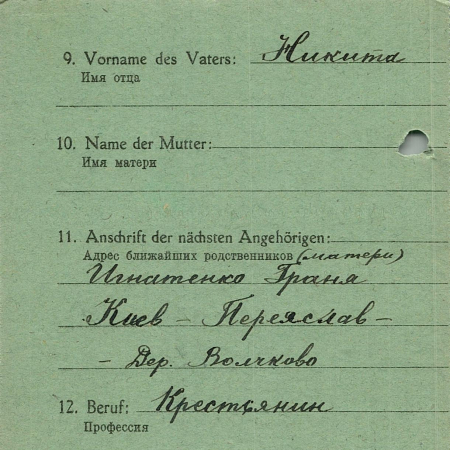 9. Vorname des Vaters: Никита
Имя отца
10. Name der Mutter:
Имя матери
11. Anschrift der nächsten Angehörigen:
Адрес ближайших родственников (матери)
Игнатенко Граня
Киев - Переяслав -
- Дер. Волчково
12. Beruf: Крестьянин
Профессия